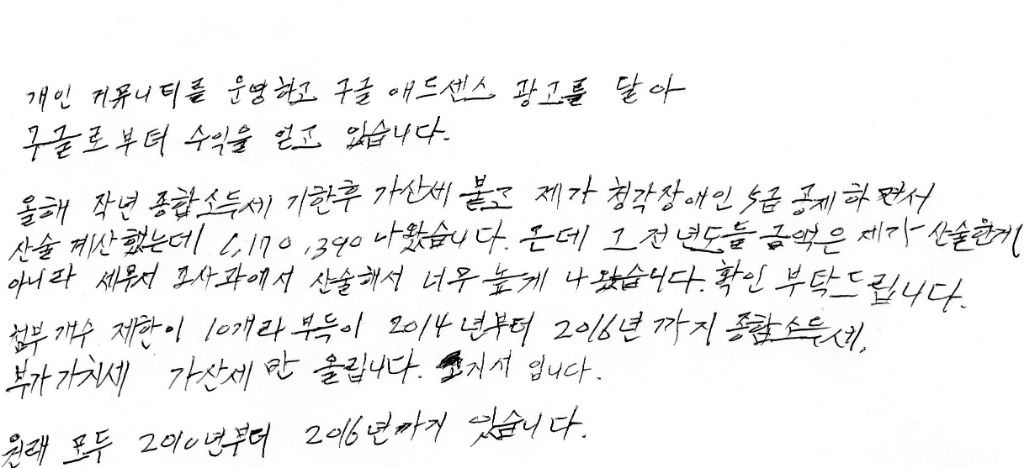 개인 커뮤니티를 운영하고 구글 애드센스 광고를 달아
구글로부터 수익을 얻고 있습니다.
올해 작년 종합소득세 기한후 가산세 붙고 제가 청각장애인 5급 공제하면서
산술 계산했는데 6,170,390 나왔습니다. 근데 그 전년도들 금액은 제가 산술한게
아니라 세무서 조사과에서 산술해서 너무 높게 나왔습니다. 확인 부탁드립니다.
첨부 개수 제한이 10개라 부득이 2014년부터 2016년까지 종합소득세,
부가가치세 가산세만 올립니다. 고지서 입니다.
원래 모두 2010년부터 2016년까지 있습니다.